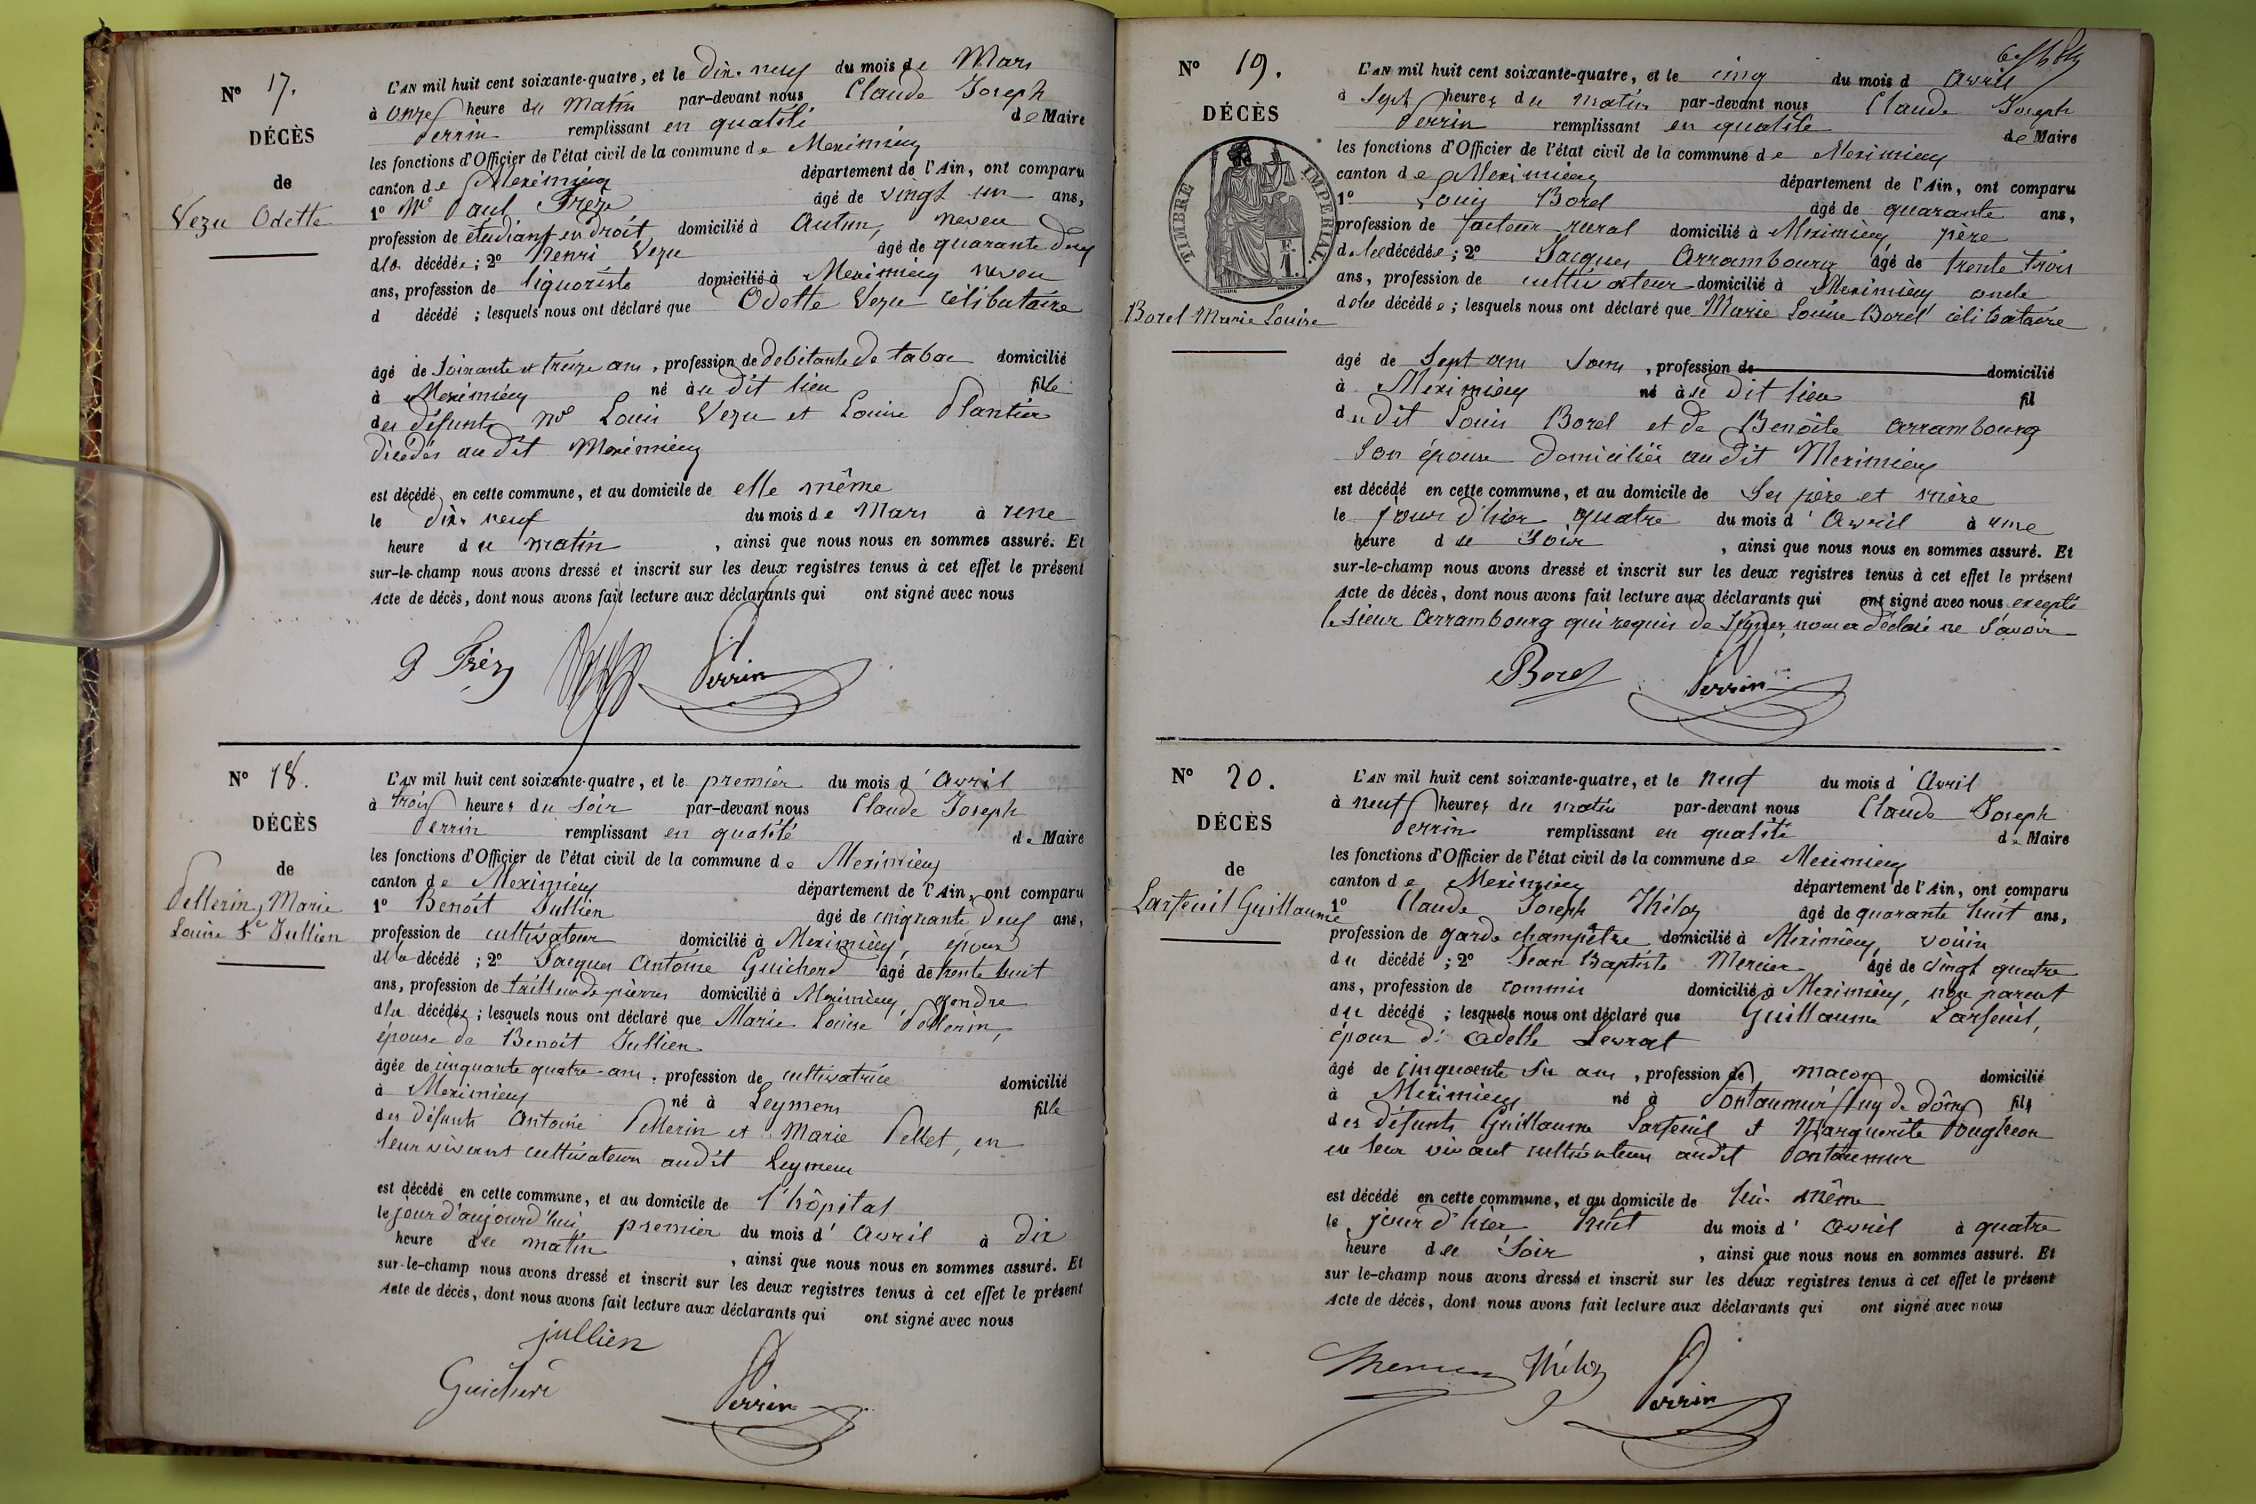 N° 17.
DÉCÈS
de
Vezu Odette
L'AN mil huit cent soixante-quatre, et le dix-neuf du mois de Mars
à onze heure du matin par-devant nous Claude Joseph
Perrin remplissant en qualité de Maire
les fonctions d'Officier de l'état civil de la commune de Meximieux
canton de Meximieux département de l'Ain, ont comparu
1° Mr Paul Frèze âgé de vingt un ans,
profession de étudiant en droit domicilié à Autun, neveu
de la décédée; 2° Henri Vezu âgé de quarante deux
ans, profession de liquoriste domicilié à Meximieux neveu
d décédé ; lesquels nous ont déclaré que Odette Vezu célibataire
âgé de soixante et treize ans, profession de débitante de tabac domicilié
à Meximieux né à ce dit lieu fille
des défunts Mr Louis Vezu et Louise Plantier
décédés au dit Meximieux
est décédé en cette commune, et au domicile de elle même
le dix-neuf du mois de Mars à une
heure du matin , ainsi que nous nous en sommes assuré. Et
sur-le-champ nous avons dressé et inscrit sur les deux registres tenus à cet effet le présent
Acte de décès, dont nous avons fait lecture aux déclarants qui ont signé avec nous
Perrin
N° 18.
DÉCÈS
de
Pellerin, Marie
Louise fe Jullien
L'AN mil huit cent soixante-quatre, et le premier du mois d'Avril
à trois heures du soir par-devant nous Claude Joseph
Perrin remplissant en qualité de Maire
les fonctions d'Officier de l'état civil de la commune de Meximieux
canton de Meximieux département de l'Ain, ont comparu
1° Benoît Jullien âgé de cinquante deux ans,
profession de cultivateur domicilié à Meximieux, époux
de la décédé ; 2° Jacques Antoine Guichard âgé de trente huit
ans, profession de tailleur de pierres domicilié à Meximieux, gendre
de la décédée ; lesquels nous ont déclaré que Marie Louise Pellerin,
épouse de Benoît Jullien
âgée de cinquante quatre ans, profession de cultivatrice domicilié
à Meximieux né à Leymens fille
des défunts Antoine Pellerin et Marie Pellet, en
leur vivant cultivateurs audit Leymens
est décédé en cette commune, et au domicile de l'hôpital
le jour d'aujourd'hui premier du mois d'Avril à dix
heure du matin , ainsi que nous nous en sommes assuré. Et
sur-le-champ nous avons dressé et inscrit sur les deux registres tenus à cet effet le présent
Acte de décès, dont nous avons fait lecture aux déclarants qui ont signé avec nous
jullien
Guichard
Perrin
N° 19.
DÉCÈS
TIMBRE IMPÉRIAL
Borel Marie Louise
L'AN mil huit cent soixante-quatre, et le cinq du mois d Avril
à sept heures du matin par-devant nous Claude Joseph
Perrin remplissant en qualité de Maire
les fonctions d'Officier de l'état civil de la commune de Meximieux
canton de Meximieux département de l'Ain, ont comparu
1° Louis Borel âgé de quarante ans,
profession de facteur rural domicilié à Meximieux, père
de la décédée; 2° Jacques Arrambourg âgé de trente trois
ans, profession de cultivateur domicilié à Meximieux, oncle
de la décédée ; lesquels nous ont déclaré que Marie Louise Borel célibataire
âgé de sept ans sans , profession de domicilié
à Meximieux né à ce dit lieu fil
du dit Louis Borel et de Benoîte Arrambourg
son épouse domiciliés au dit Meximieux
est décédé en cette commune, et au domicile de ses père et mère
le jour d'hier quatre du mois d'Avril à une
heure du soir , ainsi que nous nous en sommes assuré. Et
sur-le-champ nous avons dressé et inscrit sur les deux registres tenus à cet effet le présent
Acte de décès, dont nous avons fait lecture aux déclarants qui ont signé avec nous excepté
le sieur Arrambourg qui requis de signer nous a déclaré ne savoir
Borel
Perrin
N° 20.
DÉCÈS
de
Larfeuil Guillaume
L'AN mil huit cent soixante-quatre, et le neuf du mois d'Avril
à neuf heures du matin par-devant nous Claude Joseph
Perrin remplissant en qualité de Maire
les fonctions d'Officier de l'état civil de la commune de Meximieux
canton de Meximieux département de l'Ain, ont comparu
1° Claude Joseph Théloz âgé de quarante huit ans,
profession de garde champêtre domicilié à Meximieux, voisin
du décédé ; 2° Jean Baptiste Mercier âgé de vingt quatre
ans, profession de commis domicilié à Meximieux, non parent
du décédé ; lesquels nous ont déclaré que Guillaume Larfeuil,
époux d' Adelle Levrat
âgé de cinquante six ans, profession de maçon domicilié
à Meximieux né à Pontaumur (Puy de dôme) fils
des défunts Guillaume Larfeuil et Marguerite Pougheon
en leur vivant cultivateurs audit Pontaumur
est décédé en cette commune, et au domicile de lui-même
le jour d'hier huit du mois d'Avril à quatre
heure du soir , ainsi que nous nous en sommes assuré. Et
sur le-champ nous avons dressé et inscrit sur les deux registres tenus à cet effet le présent
Acte de décès, dont nous avons fait lecture aux déclarants qui ont signé avec nous
Mercier Théloz
Perrin